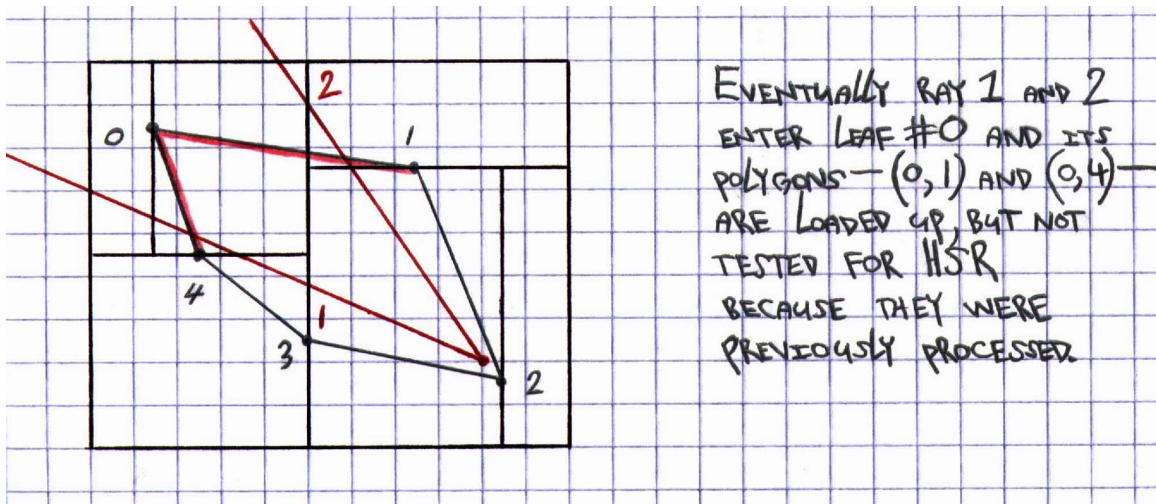 2
0
1
4
1
3
2
EVENTUALLY RAY 1 AND 2
ENTER LEAF #0 AND ITS
POLYGONS—(0,1) AND (0,4)—
ARE LOADED UP, BUT NOT
TESTED FOR HSR
BECAUSE THEY WERE
PREVIOUSLY PROCESSED.